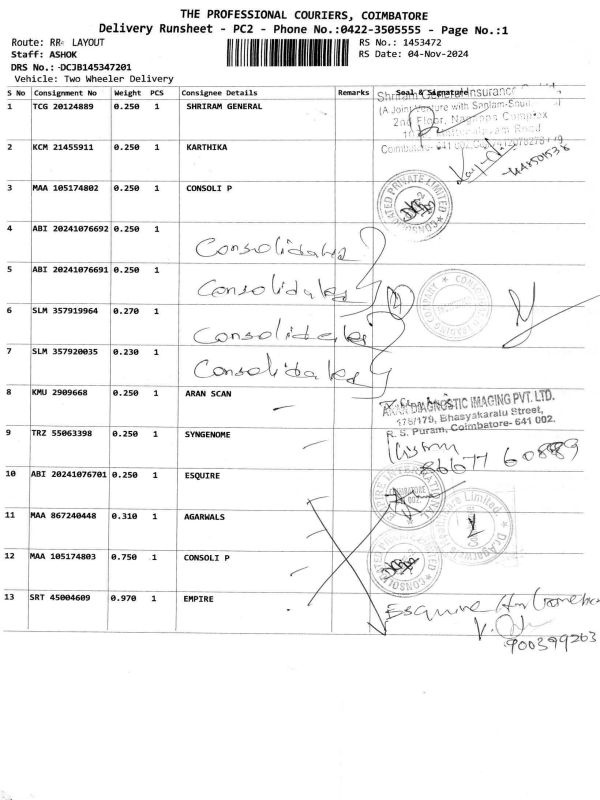 THE PROFESSIONAL COURIERS, COIMBATORE
Delivery Runsheet - PC2 - Phone No.:0422-3505555 - Page No.:1
Route: RR LAYOUT
RS No.: 1453472
Staff: ASHOK
RS Date: 04-Nov-2024
DRS No.: DCJB145347201
Vehicle: Two Wheeler Delivery
S No Consignment No Weight PCS Consignee Details Remarks Seal & Signature
Shriram General Insurance
1 TCG 20124889 0.250 1 SHRIRAM GENERAL
(A Joint Venture with Sanlam-South
2nd Floor, Complex
Road
2 KCM 21455911 0.250 1 KARTHIKA
Coimbatore- 641
3 MAA 105174802 0.250 1 CONSOLI P
4 ABI 20241076692 0.250 1 Consolidates
5 ABI 20241076691 0.250 1 Consolidates
6 SLM 357919964 0.270 1 Consolidates
7 SLM 357920035 0.230 1 Consolidates
8 KMU 2909668 0.250 1 ARAN SCAN
ARAN DIAGNOSTIC IMAGING PVT. LTD.
175/179, Bhasyakaralu Street,
R. S. Puram, Coimbatore- 641 002.
9 TRZ 55063398 0.250 1 SYNGENOME
86677 60889
10 ABI 20241076701 0.250 1 ESQUIRE
11 MAA 867240448 0.310 1 AGARWALS
12 MAA 105174803 0.750 1 CONSOLI P
13 SRT 45004609 0.970 1 EMPIRE
Esquire
900399263